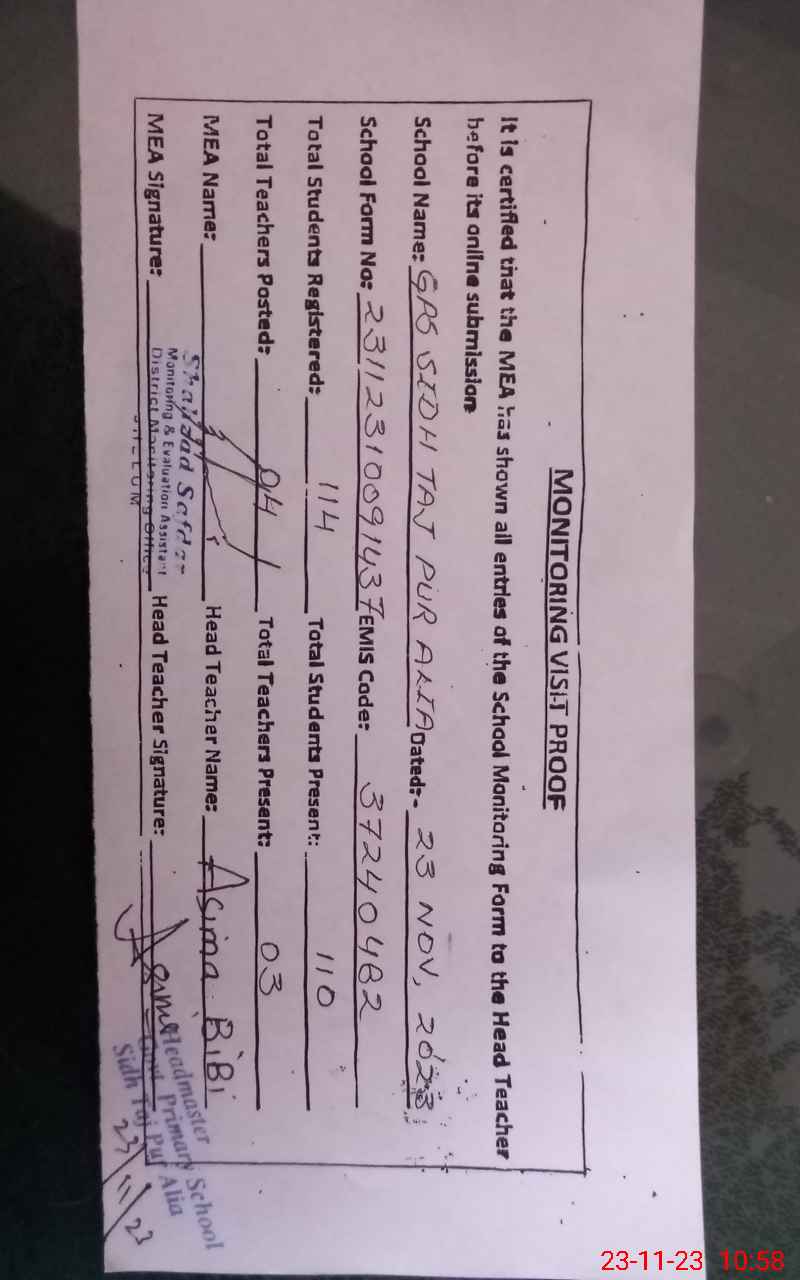 MONITORING VISIT PROOF
It is certified that the MEA has shown all entries of the School Monitoring Form to the Head Teacher
before its online submission
School Name: GPS SIDH TAJ PUR ALIA Dated:- 23 NOV, 2023
School Form No: 23112310091437 EMIS Code: 37240482
Total Students Registered: 114 Total Students Present: 110
Total Teachers Posted: 04 Total Teachers Present: 03
MEA Name: Head Teacher Name: Asima BiBi
Safdar
Monitoring & Evaluation Assistant
District Monitoring Office
JHELUM
MEA Signature: Head Teacher Signature: Asima
Headmaster
Govt Primary School
Sidh Taj Pur Alia
23/11/23
23-11-23 10:58